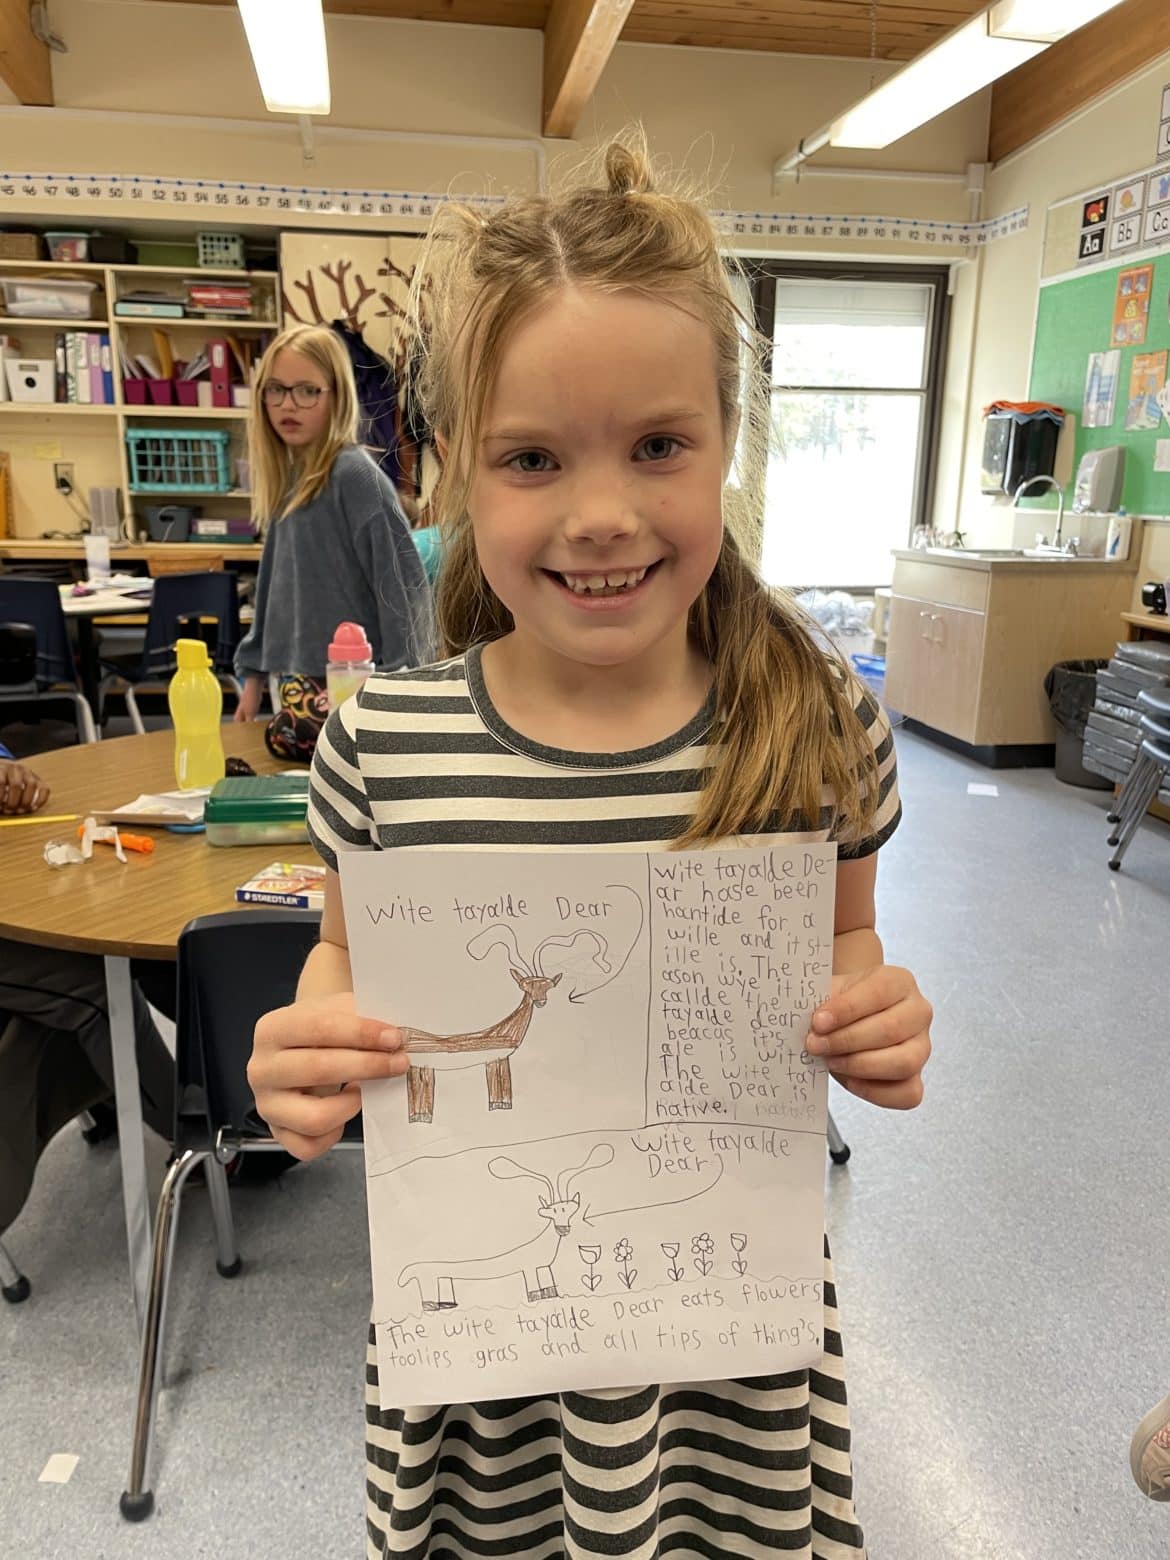 45 46 47 48 49 50 51 52 53 54 55 56 57 58 59 60 61 62 63 64 65
82 83 84 85 86 87 88 89 90 91 92 93 94 95 96 98 99 100
Aa Bb Cc
STAEDTLER
Wite tayalde Dear
Wite tayalde De-
ar hase been
hantide for a
wille and it st-
ille is. The re-
ason wye it is
callde the wite
tayalde dear
beacas it's
ale is wite
The wite tay
alde Dear is
native. native
Wite tayalde
Dear
The wite tayalde Dear eats flowers
toolips gras and all tips of thing's.